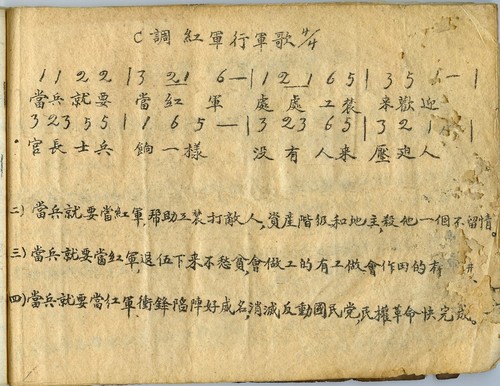 C調 紅軍行軍歌 4/4
1 1 2 2 | 3 21 6 — | 1 2 1 6 5 | 3 5 1 — |
當兵就要 當紅 軍 處處工裝 来歡迎
3 23 5 5 | 1 6 5 — | 3 23 6 5 | 3 2 1 — |
官長士兵 餉一樣 没有人来壓廹人
二) 當兵就要當紅軍,帮助工裝打敵人,資産階級和地主,殺他一個不留情。
三) 當兵就要當紅軍,退伍下来不愁貧,會做工的有工做,會作田的有 耕
四) 當兵就要當红軍,衝鋒陷陣好威名,消滅反動國民党,民權革命快完成。